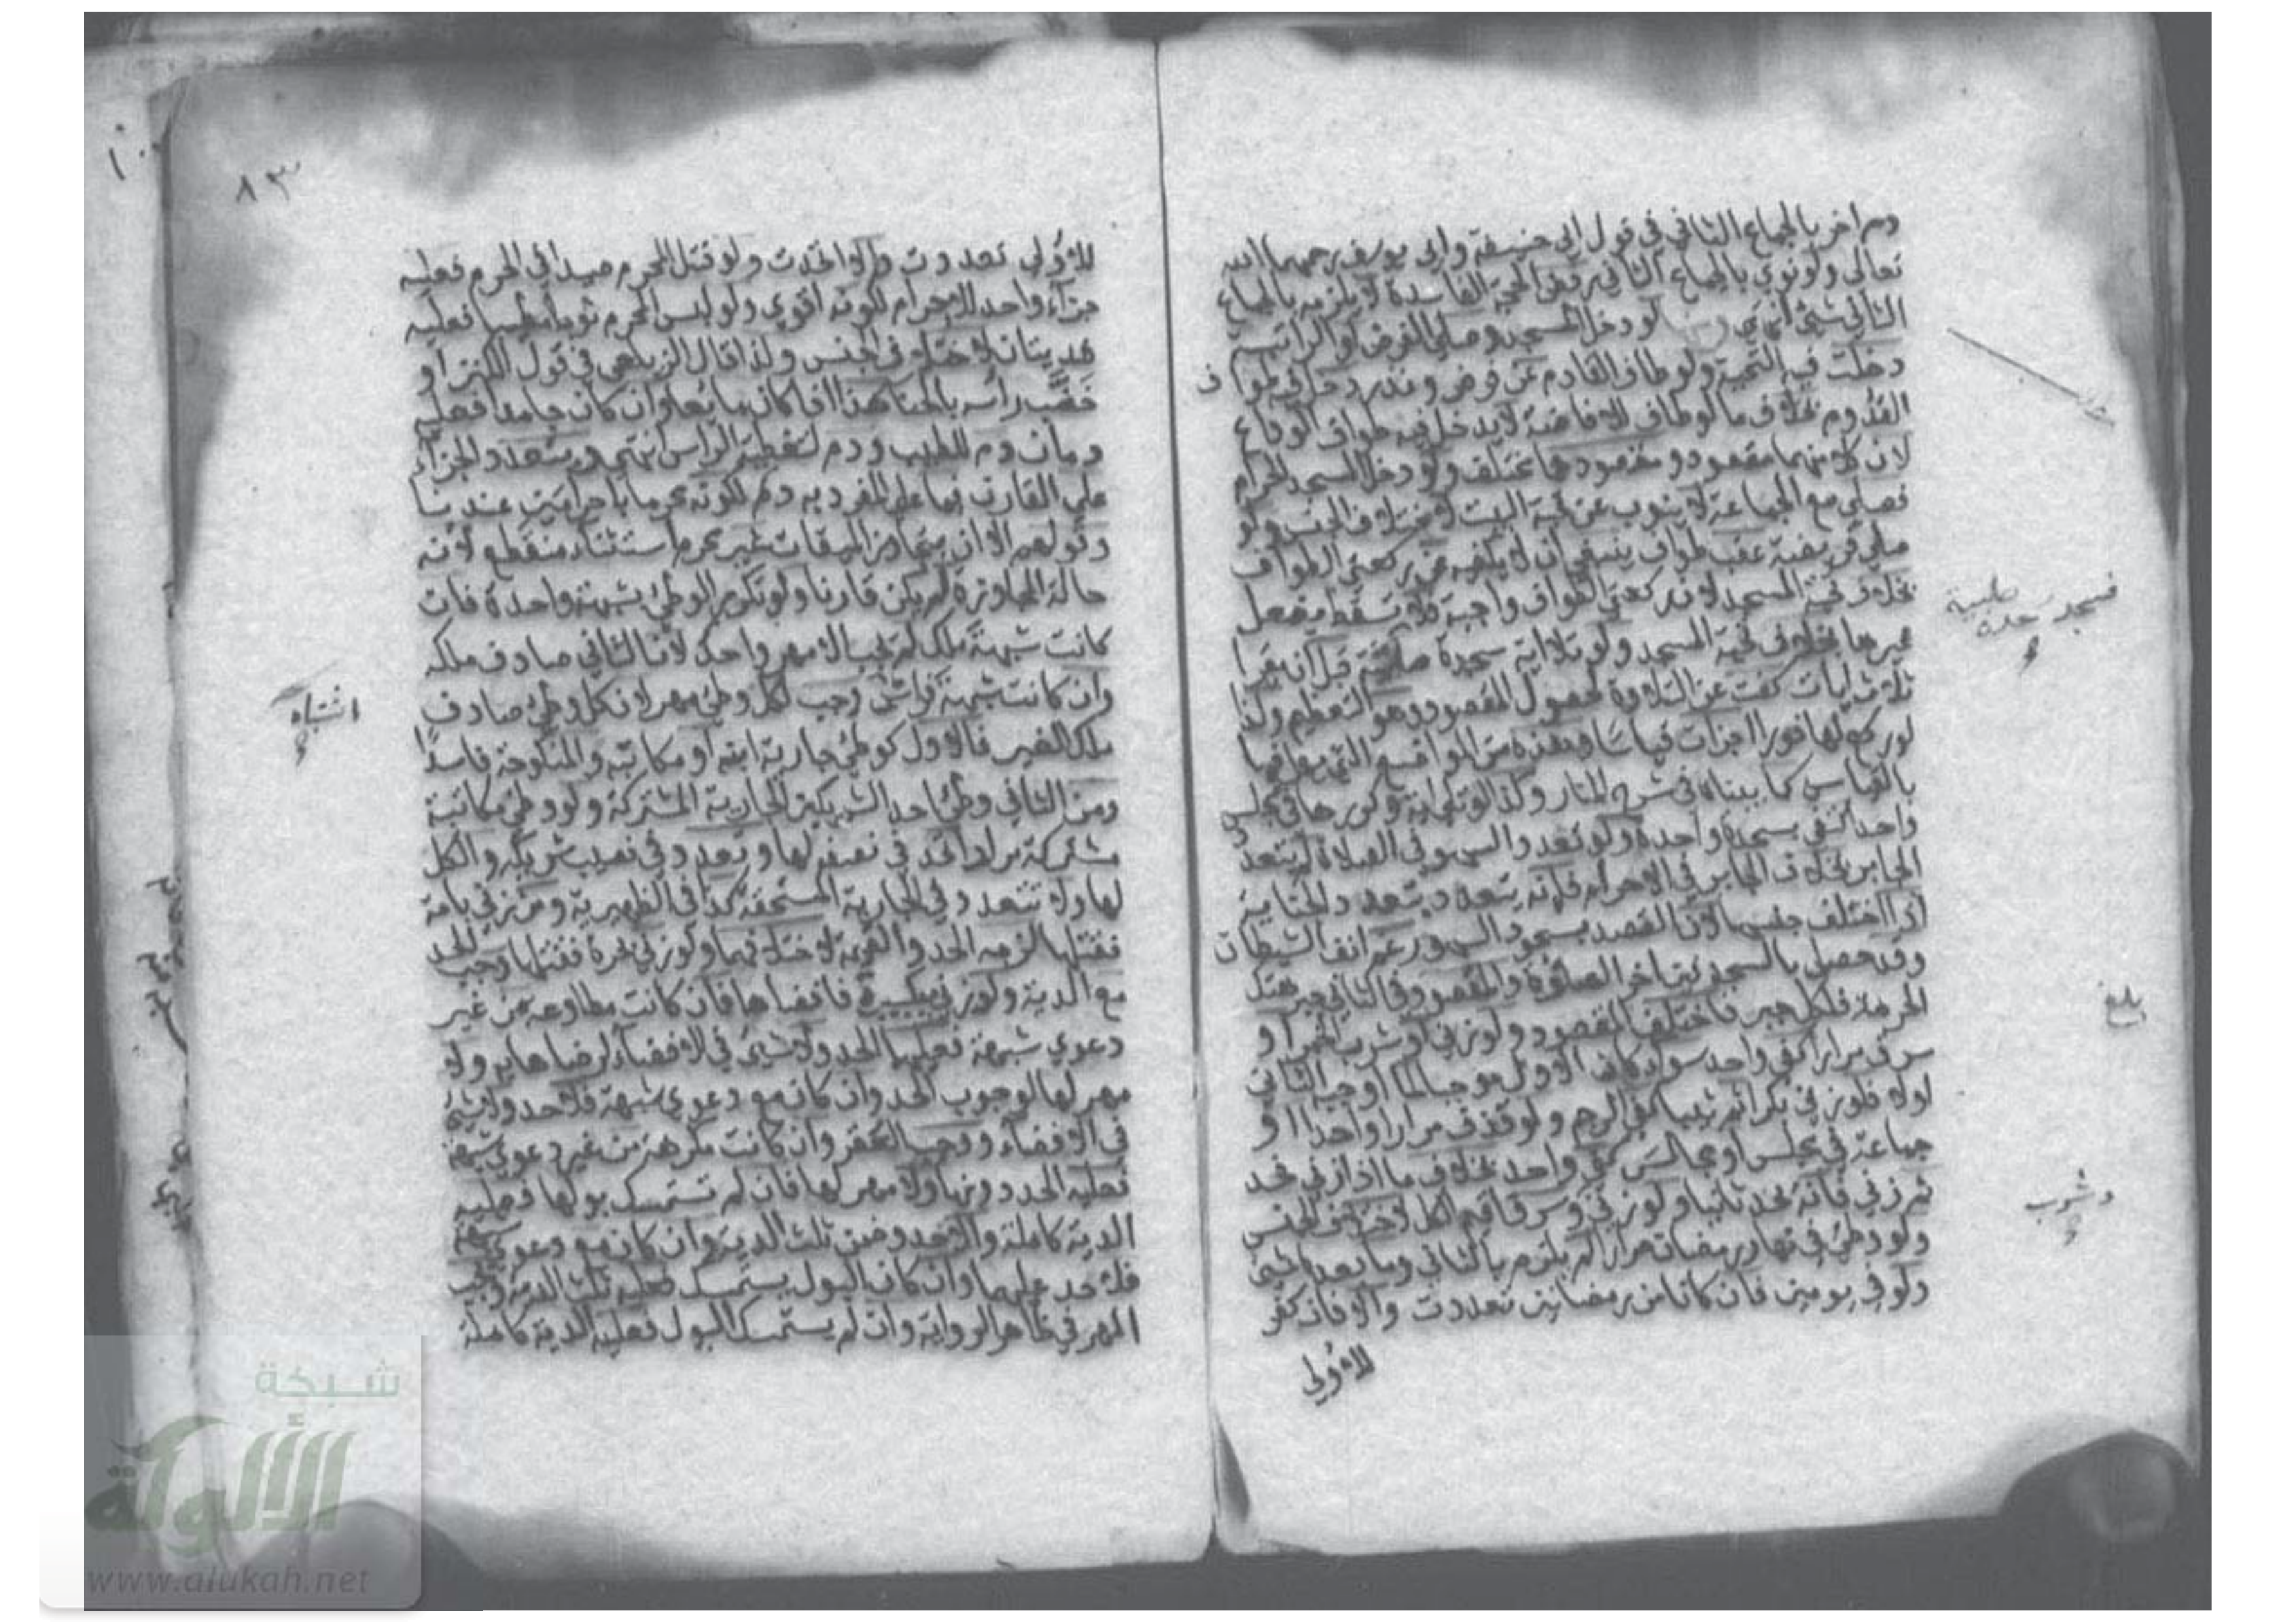 دم اخر بالجماع الثاني في قول ابي حنيفة وابي يوسف رحمهما الله
تعالى ولو نوي بالجماع الثاني رفض الحجة الفاسدة لا يلزمه بالجماع
الثاني شيئ انتهي لو دخل المسجد وصلي الفرض او الراتبة
دخلت فيه التحية ولو طاف القادم عن فرض ونذر دخل فيه طواف
القدوم بخلاف ما لو طاف للافاضة لا يدخل فيه طواف الوداع
لان كلا منهما مقصود ومقصودهما مختلف ولو دخل المسجد الحرام
فصلي مع الجماعة لا ينوب عن تحية البيت لاختلاف الجنس ولو
صلي فريضة عقب طواف ينبغي ان لا يكفيه عن ركعتي الطواف
بخلاف تحية المسجد لان ركعتي الطواف واجبة فلا تسقط بفعل
غيرها بخلاف تحية المسجد ولو تلا اية سجدة صلبية قبل ان يقرا
ثلاث ايات كفت عن التلاوة لحصول المقصود وهو التعظيم ولذا
لو ركع لها فورا اجزات قياسا وهذه من المواضع التي يعمل فيها
بالقياس كما بيناه في شرح المنار وكذا لو تلا اية وكررها في مجلس
واحد اكتفي بسجدة واحدة ولو تعدد السهو في الصلاة لم يتعدد
الجابر بخلاف الجابر في الاحرام فانه يتعدد بتعدد الجناية
اذا اختلف جنسها لان القصد بسجود السهو رغم انف الشيطان
وقد حصل بالسجدتين اخر الصلوة والمقصود في الثاني جبر هتك
الحرمة فلكل جبر فاختلف المقصود ولو زني او شرب الخمر او
سرق مرارا كفي واحد سواء كان الاول موجبا لما اوجبه الثاني
او لا فلو زني بكرا ثم ثيبا كفي الرجم ولو قذف مرارا واحدا او
جماعة في مجلس او مجالس كفي واحد بخلاف ما اذا زني فحد
ثم زني فانه يحد ثانيا ولو زني وسرق اقيم الكل لاختلاف الجنس
ولو وطئ في نهار رمضان مرارا لم يلزم بالثاني وما بعده شيئ
ولو في يومين فان كانا من رمضانين تعددت والا فان كفر
للاولي
فسجد صلبية
حده
بلغ
وشرب
٨٣
للاولي تعددت والا اتحدت ولو قتل المحرم صيدا في الحرم فعليه
جزاء واحد للاحرام لكونه اقوي ولو لبس المحرم ثوبا مطيبا فعليه
فديتان لاختلاف الجنس ولذا قال الزيلعي في قول الكنز او
خضب راسه بالحنا هذا اذا كان مايعا وان كان جامدا فعليه
دمان دم للطيب ودم لتغطية الراس انتهي ويتعدد الجزاء
علي القارن فيما علي المفرد به دم لكونه محرما باحرامين عندنا
وقولهم الا ان يتجاوز الميقات غير محرم استثناء منقطع لانه
حالة المجاوزة لم يكن قارنا ولو تكرر الوطئ بشبهة واحدة فان
كانت شبهة ملك لم يجب الا مهر واحد لان الثاني صادف ملكه
وان كانت شبهة اشتباه وجب لكل وطئ مهر لان كل وطئ صادف
ملك الغير فالاول كوطئ جارية ابنه او مكاتبه والمنكوحة فاسدا
ومن الثاني وطئ احد الشريكين الجارية المشتركة ولو وطئ مكاتبة
مشتركة مرارا اتحد في نصفه لها وتعدد في نصيب شريكه والكل
لها ولا تتعدد في الجارية المستحقة كذا في الظهيرية ومن زني بامة
فقتلها لزمه الحد والقيمة لاختلافهما ولو زني بحرة فقتلها وجب الحد
مع الدية ولو زني بكبيرة فافضاها فان كانت مطاوعة من غير
دعوي شبهة فعليهما الحد ولا شيئ في الافضاء لرضاها به ولا
مهر لها لوجوب الحد وان كان مع دعوي شبهة فلا حد ولا شيئ
في الافضاء ووجب العقر وان كانت مكرهة من غير دعوي شبهة
فعليه الحد دونها ولا مهر لها فان لم تستمسك بولها فعليه
الدية كاملة والا حد وضمن ثلث الدية وان كان مع دعوي شبهة
فلا حد عليهما وان كان البول يستمسك فعليه ثلث الدية ويجب
المهر في ظاهر الرواية وان لم يستمسك البول فعليه الدية كاملة
اشتباه
شبكة
الألوكة
www.alukah.net